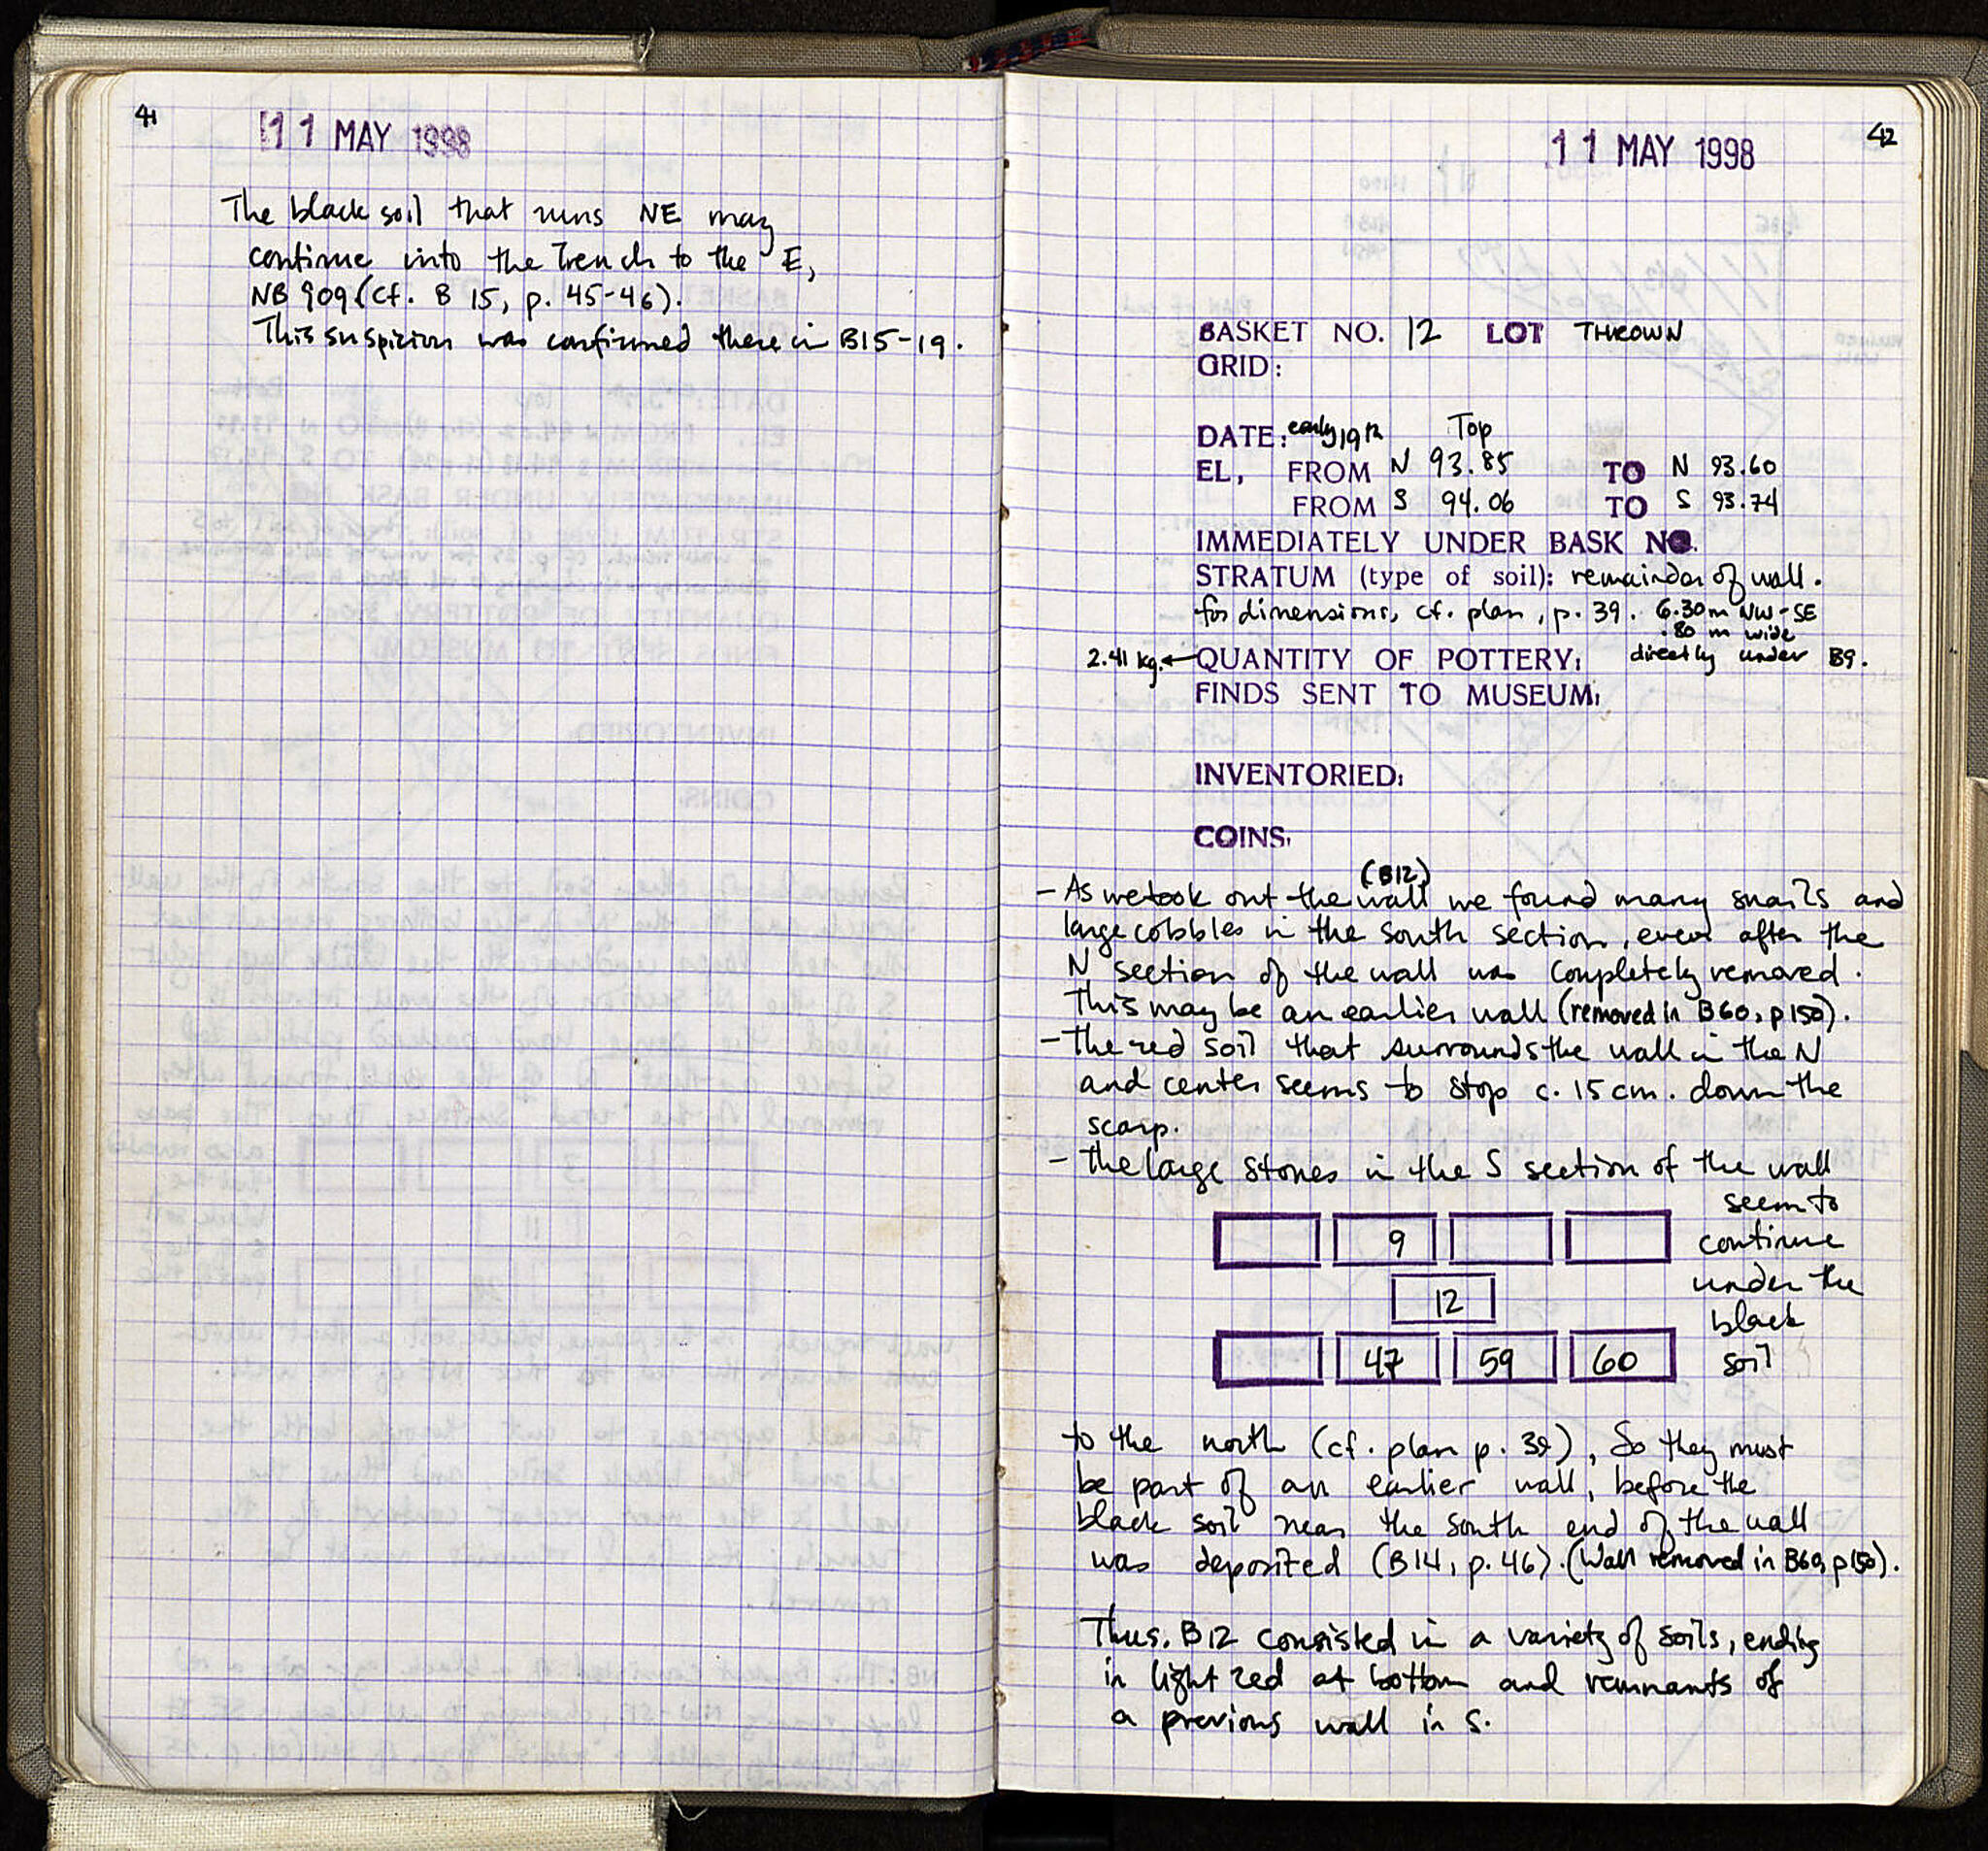 41
11 MAY 1998
The black soil that runs NE may
continue into the Trench to the E,
NB 909 (cf. B 15, p. 45-46).
This suspicion was confirmed there in B15-19.
42
11 MAY 1998
BASKET NO. 12 LOT THROWN
GRID:
DATE: early 19th Top
EL, FROM N 93.85 TO N 93.60
FROM S 94.06 TO S 93.74
IMMEDIATELY UNDER BASK NO.
STRATUM (type of soil): remainder of wall.
for dimensions, cf. plan, p. 39. 6.30m NW-SE
.80 m wide
2.41 kg. ← QUANTITY OF POTTERY: directly under B9.
FINDS SENT TO MUSEUM:
INVENTORIED:
COINS:
(B12)
- As we took out the wall we found many snails and
large cobbles in the south section, even after the
N section of the wall was completely removed.
This may be an earlier wall (removed in B60, p150).
- The red soil that surrounds the wall in the N
and center seems to stop c. 15 cm. down the
scarp.
- The large stones in the S section of the wall
seem to
9 continue
12 under the
black
47 59 60 soil
to the north (cf. plan p. 39), So they must
be part of an earlier wall, before the
black soil near the south end of the wall
was deposited (B14, p. 46). (Wall removed in B60, p150).
Thus, B12 consisted in a variety of soils, ending
in light red at bottom and remnants of
a previous wall in S.